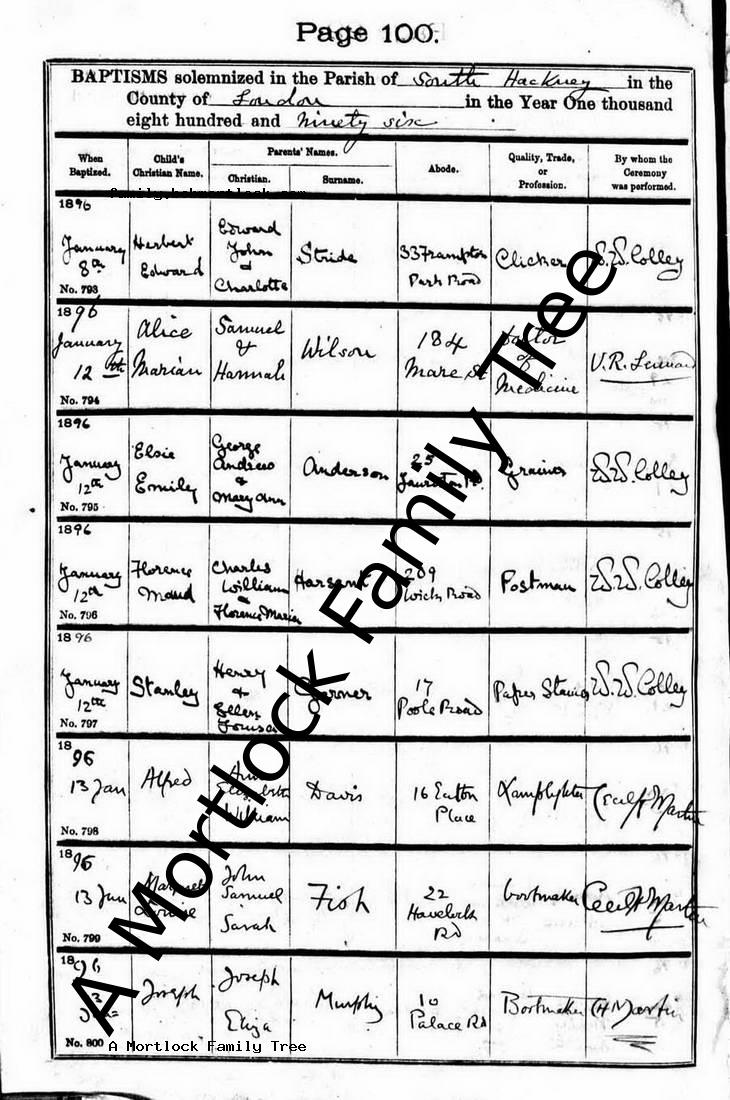 Page 100.
BAPTISMS solemnized in the Parish of South Hackney in the
County of London in the Year One thousand
eight hundred and ninety six
When Baptized. Child's Christian Name. Parents' Names. Christian. Surname. Abode. Quality, Trade, or Profession. By whom the Ceremony was performed.
family.hckmortlock.com
1896
January 8th Herbert Edward Edward John & Charlotte Stride 33 Frampton Park Road Clicker Colley
No. 793
1896
January 12th Alice Marian Samuel & Hannah Wilson 184 Mare St Doctor of Medicine V.R. Lennard
No. 794
1896
January 12th Elsie Emily George Andrew & Mary Ann Anderson 25 Grainer Colley
No. 795
1896
January 12th Florence Maud Charles William & Florence Maria Harsant 289 Wick Road Postman Colley
No. 796
1896
January 12th Stanley Henry & Ellen Louisa 17 Poole Road Paper Stainer Colley
No. 797
1896
13 Jan Alfred Elizabeth William Davis 16 Eatton Place Lamplighter Cecil H Martin
No. 798
1896
13 Jan Margaret Louise John Samuel Sarah Fish 22 Havelock Rd bootmaker Cecil H Martin
No. 799
1896
13 Jan Joseph Joseph Eliza Murphy 10 Palace Rd Bootmaker CH Martin
No. 800
A Mortlock Family Tree
A Mortlock Family Tree